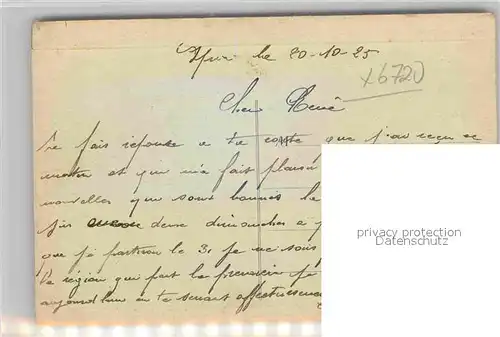 le 20-10-25
x6720
Cher René
Je fais réponse a ta carte que j'ai reçu ce
matin et qui m'a fait plaisir
nouvelles que sont bonnes
deux dimanches a
que je partirai le 3, je ne suis
la région que fait la je
aujourd'hui en te serrant affectueusement
privacy protection
Datenschutz